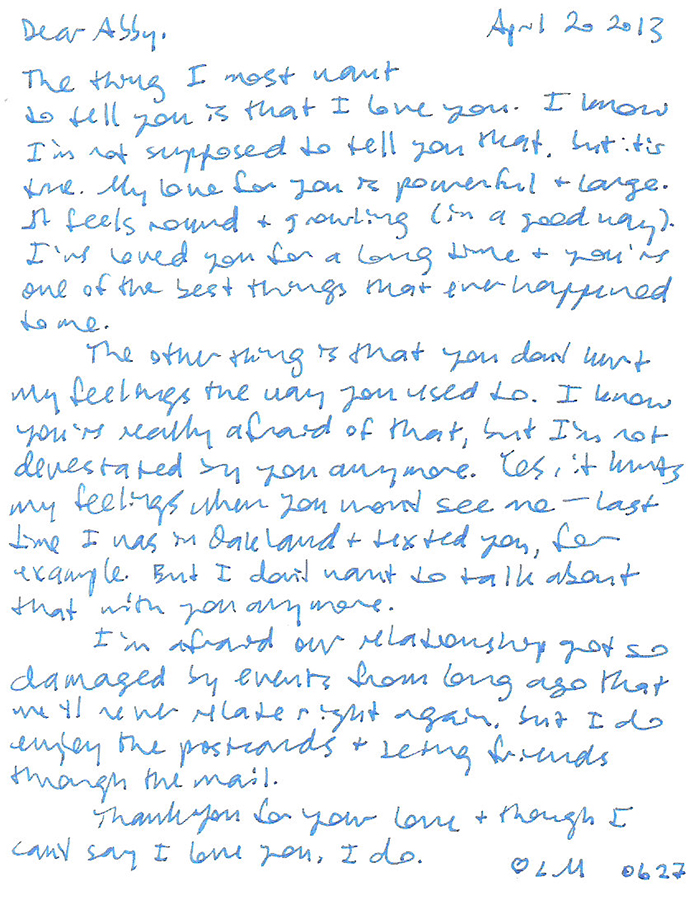 Dear Abby, April 20 2013
The thing I most want
to tell you is that I love you. I know
I'm not supposed to tell you that, but it is
true. My love for you is powerful + large.
It feels round + growling (in a good way).
I've loved you for a long time + you're
one of the best things that ever happened
to me.
The other thing is that you don't hurt
my feelings the way you used to. I know
you're really afraid of that, but I'm not
devestated by you anymore. Yes, it hurts
my feelings when you won't see me — last
time I was in Oakland + texted you, for
example. But I don't want to talk about
that with you anymore.
I'm afraid our relationship got so
damaged by events from long ago that
we'll never relate right again, but I do
enjoy the postcards + being friends
through the mail.
Thank you for your love + though I
can't say I love you, I do. ♡ LM 0627